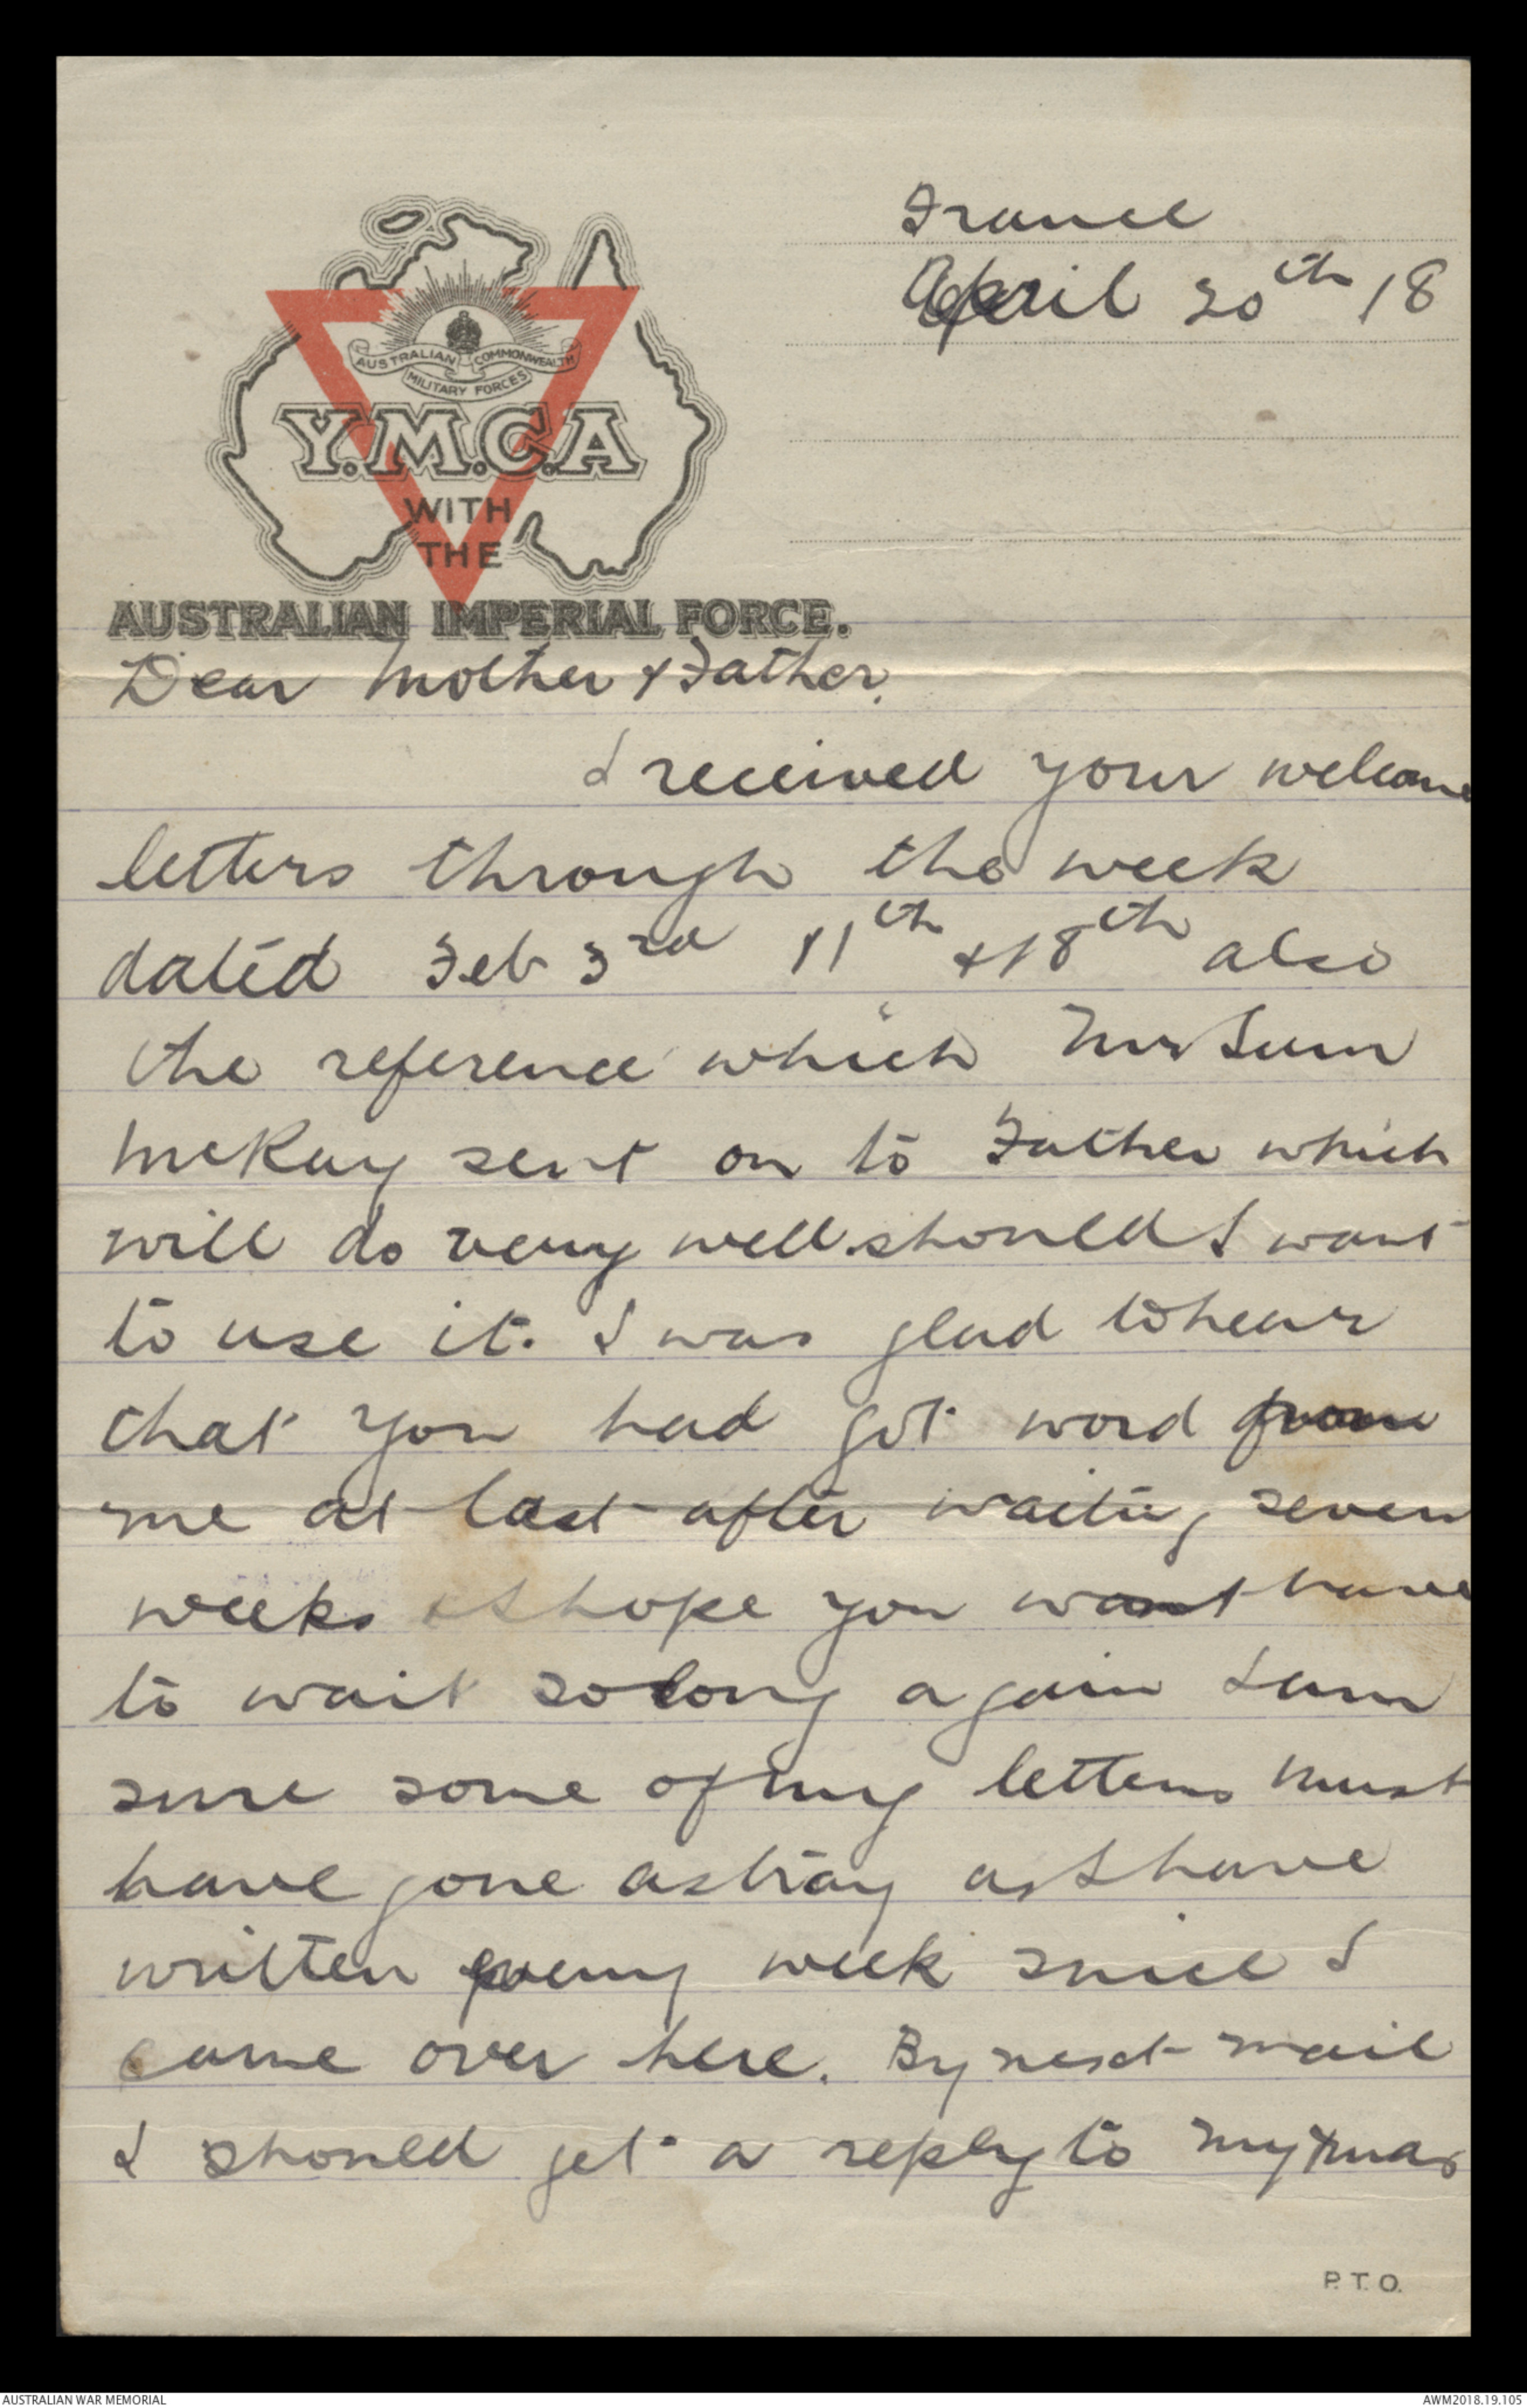 France
April 20th /18
AUSTRALIAN COMMONWEALTH
MILITARY FORCES
Y.M.C.A
WITH
THE
AUSTRALIAN IMPERIAL FORCE.
Dear Mother & Father,
I received your welcome
letters through the week
dated Feb 3rd 11th & 18th also
the reference which Mr
McKay sent on to Father which
will do very well should I want
to use it. I was glad to hear
that you had got word from
me at last after waiting seven
weeks & I hope you wont have
to wait so long again I am
sure some of my letters must
have gone astray as I have
written every week since I
came over here. By next mail
I should get a reply to my Xmas
P.T.O.
AUSTRALIAN WAR MEMORIAL
AWM2018.19.105